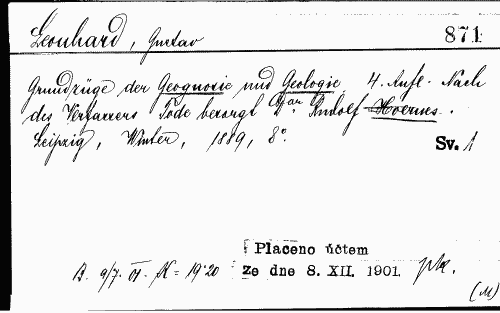 Leonhard, Gustav
871
Grundzüge der Geognosie und Geologie. 4. Aufl. Nach
des Verfassers Tode besorgt von Rudolf Hoernes.
Leipzig, Winter, 1889, 8°.
Sv. 1
Placeno účtem
B. 9/7. 01. K = 19·20 ze dne 8. XII. 1901.
(M)